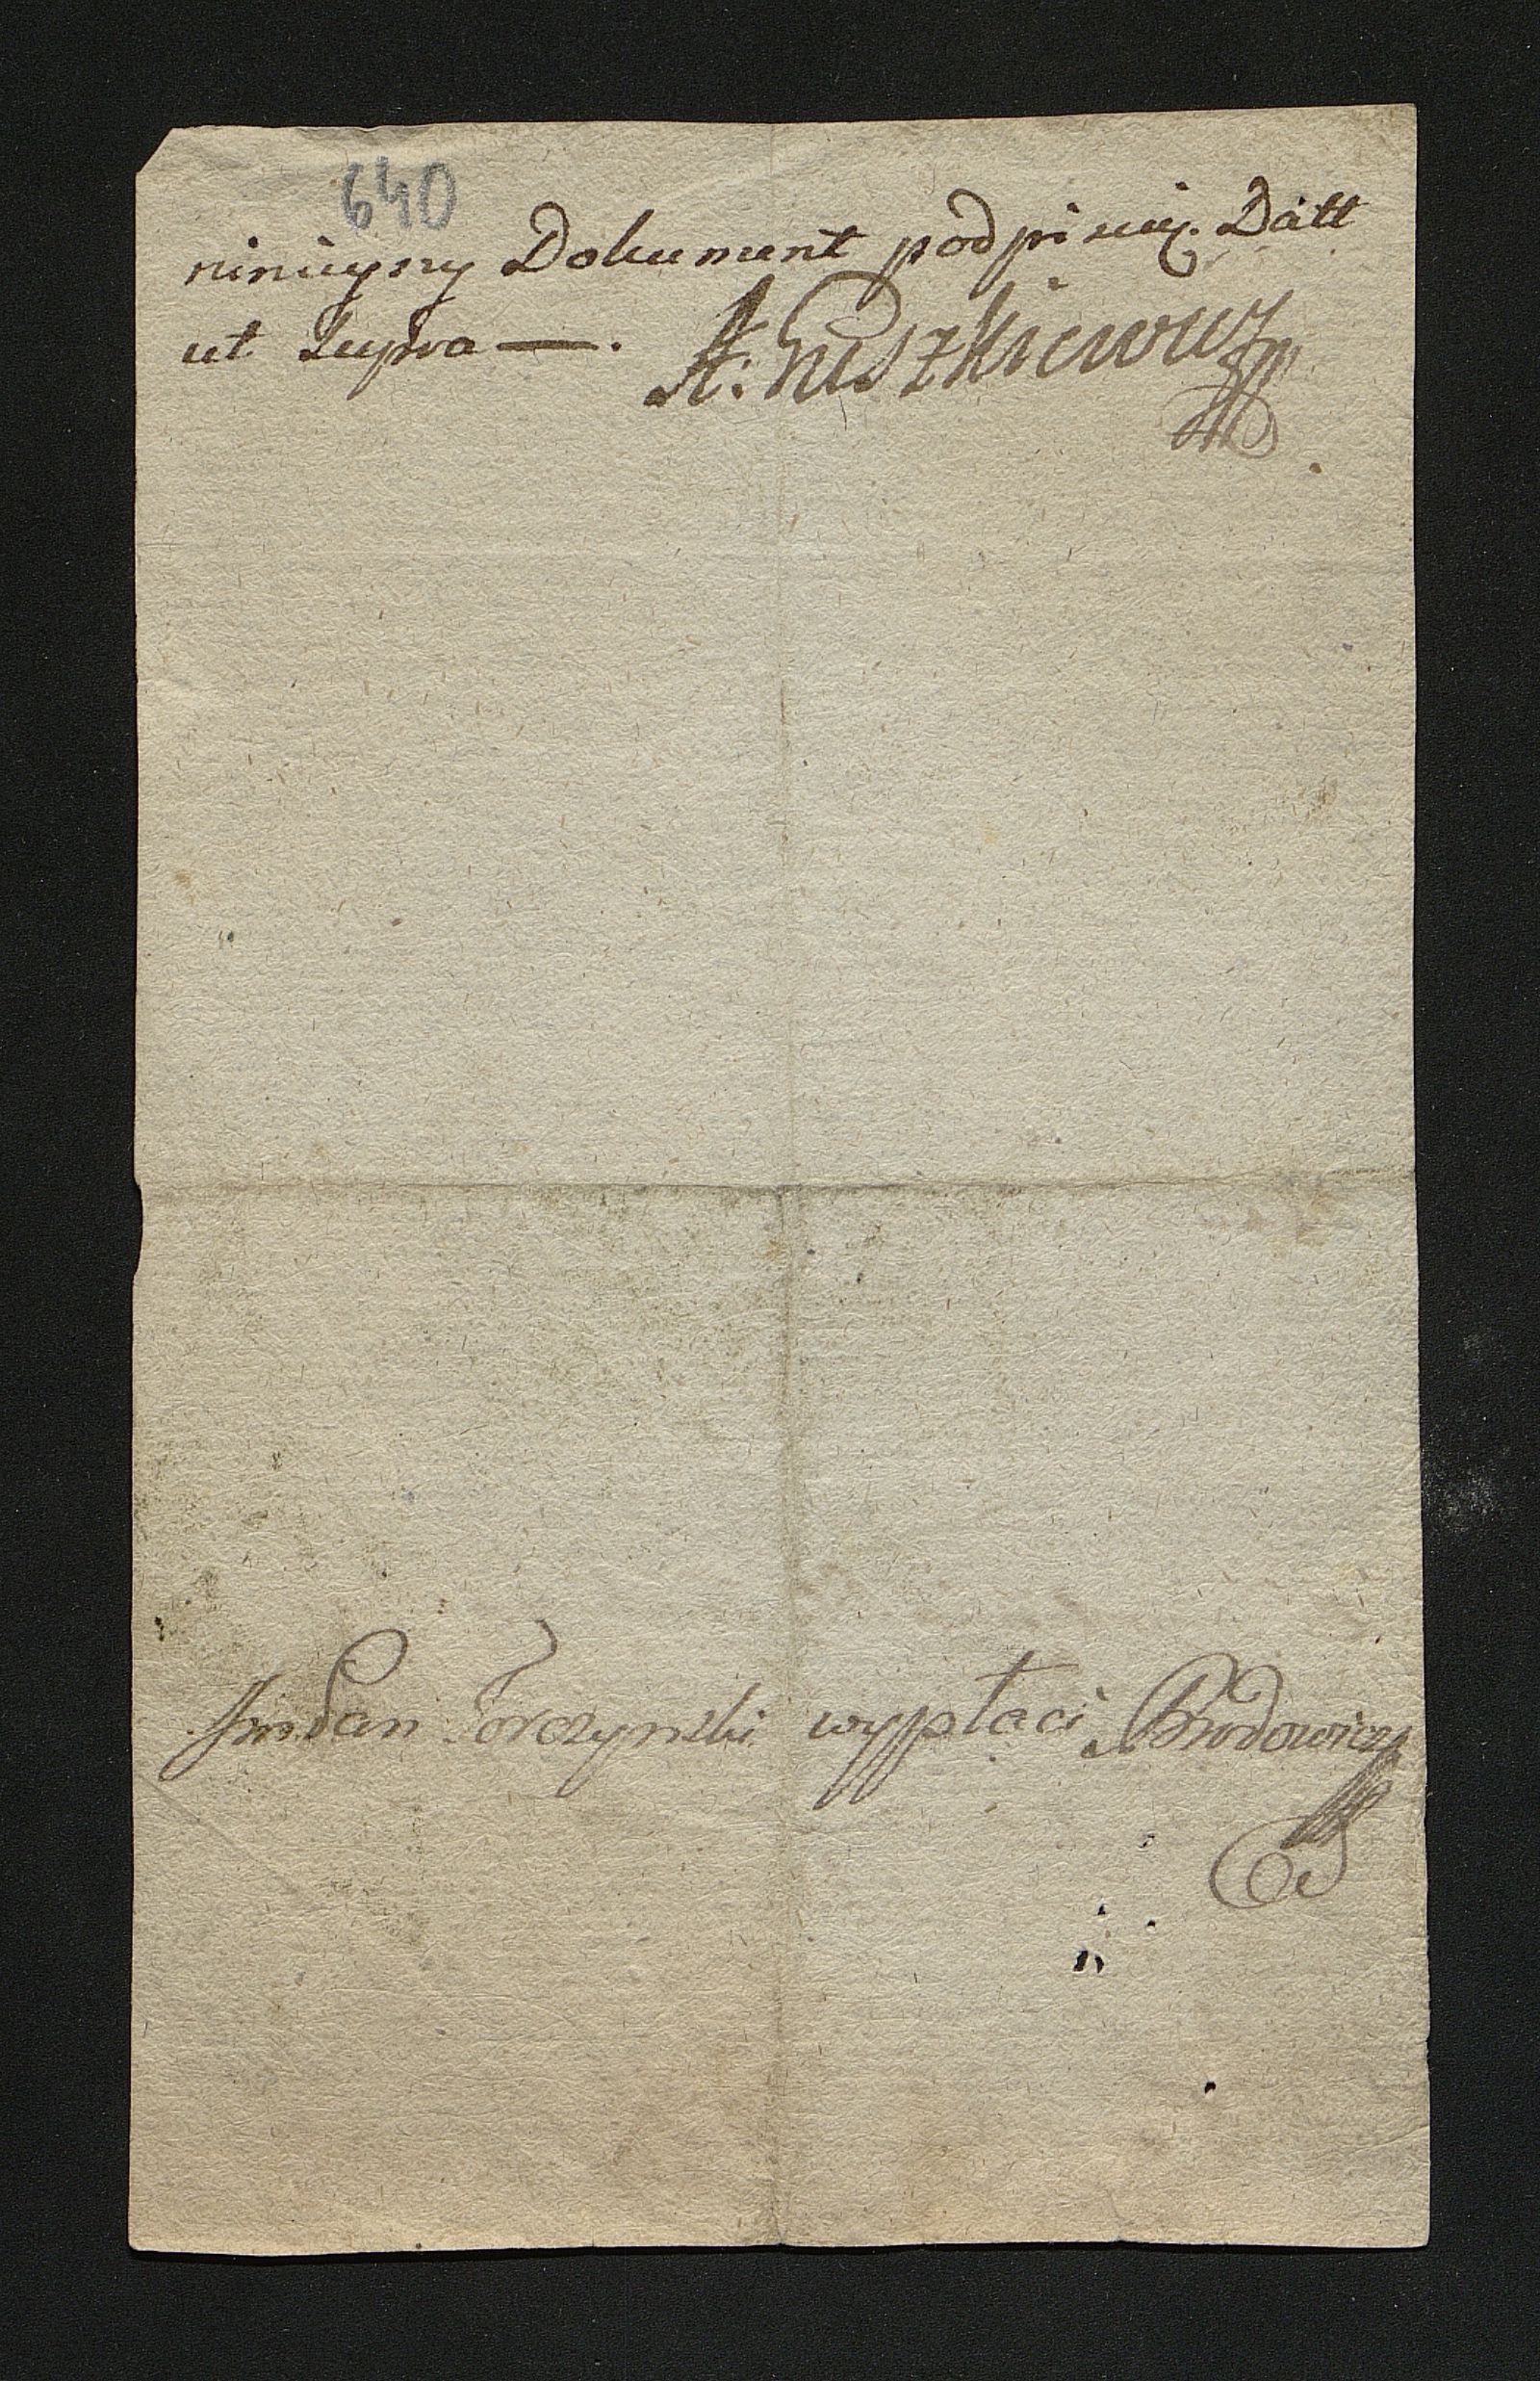 640
ninieyszy Dokument podpisuię. Datt
ut Supra —.
A: Puszkiewicz
Jm Pan Torczynski wyplaci Brodowicz